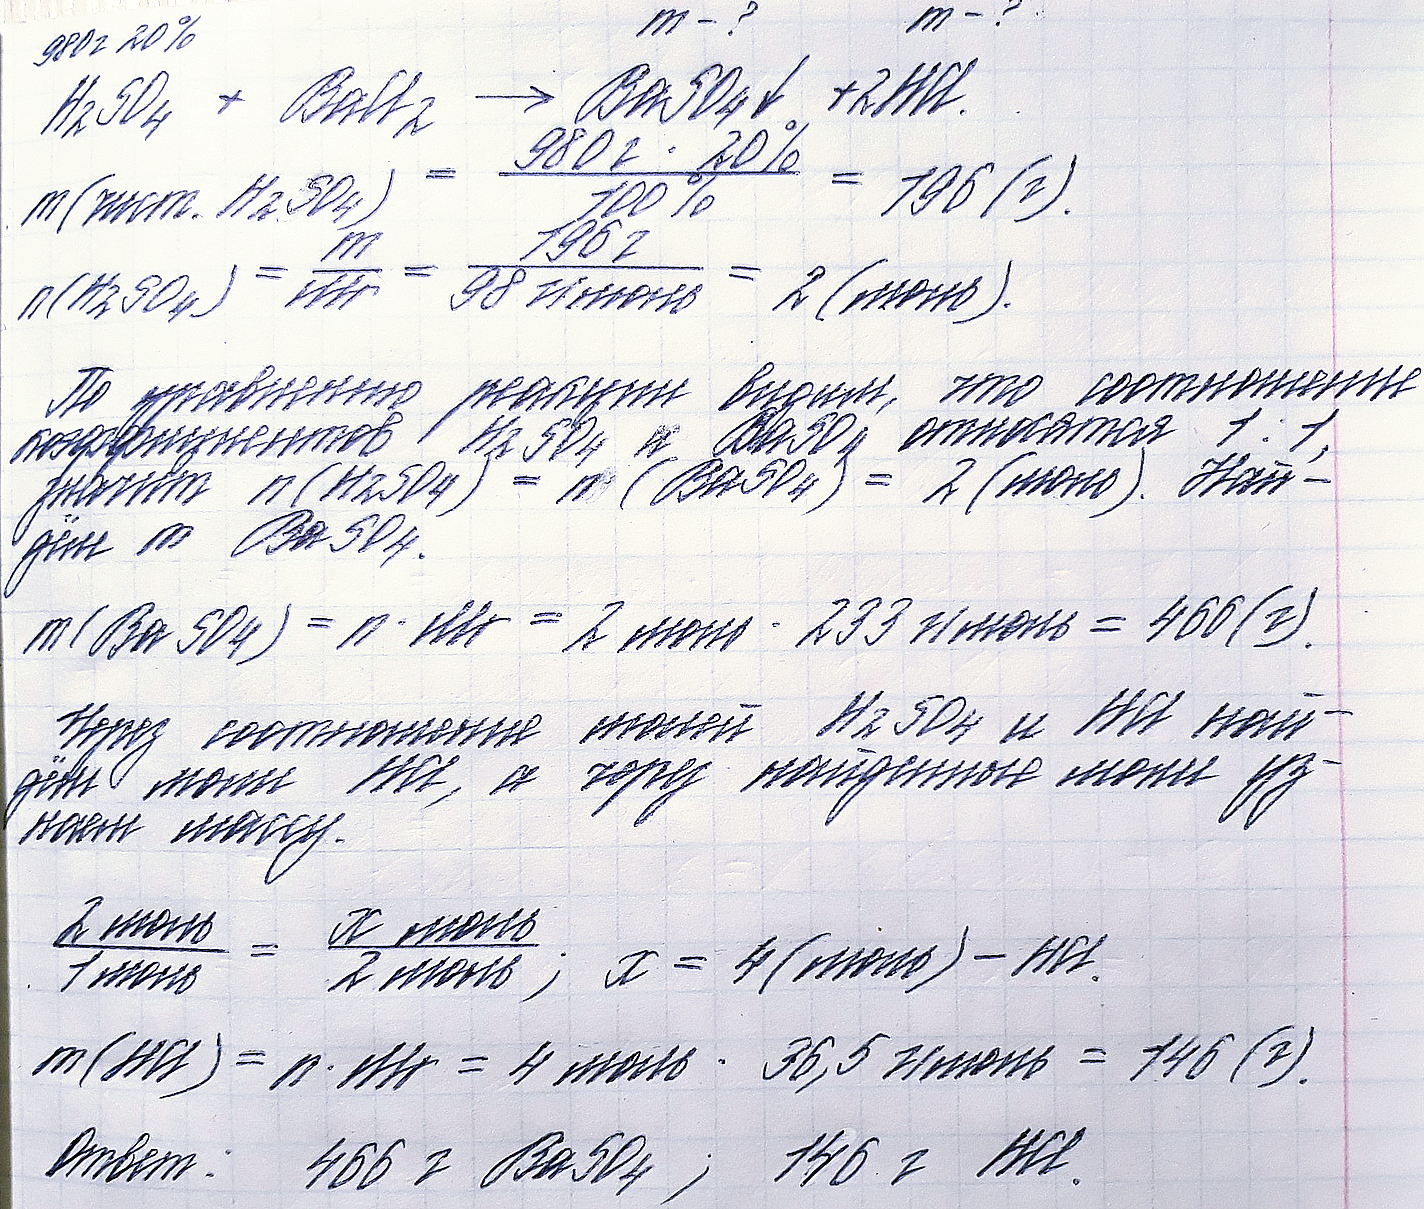 m - ? m - ?
980г 20%
H₂SO₄ + BaCl₂ → BaSO₄↓ + 2HCl.
m(чист. H₂SO₄) = 980г · 20% / 100% = 196 (г).
n(H₂SO₄) = m / Mr = 196 г / 98 г/моль = 2 (моль).
По уравнению реакции видим, что соотношение
коэффициентов H₂SO₄ и BaSO₄ относятся 1 : 1,
значит n(H₂SO₄) = n (BaSO₄) = 2 (моль). Най-
дём m BaSO₄.
m(BaSO₄) = n · Mr = 2 моль · 233 г/моль = 466 (г).
Через соотношение молей H₂SO₄ и HCl най-
дём моли HCl, а через найденные моли уз-
наем массу.
2 моль / 1 моль = x моль / 2 моль ; x = 4 (моль) – HCl.
m(HCl) = n · Mr = 4 моль · 36,5 г/моль = 146 (г).
Ответ: 466 г BaSO₄ ; 146 г HCl.